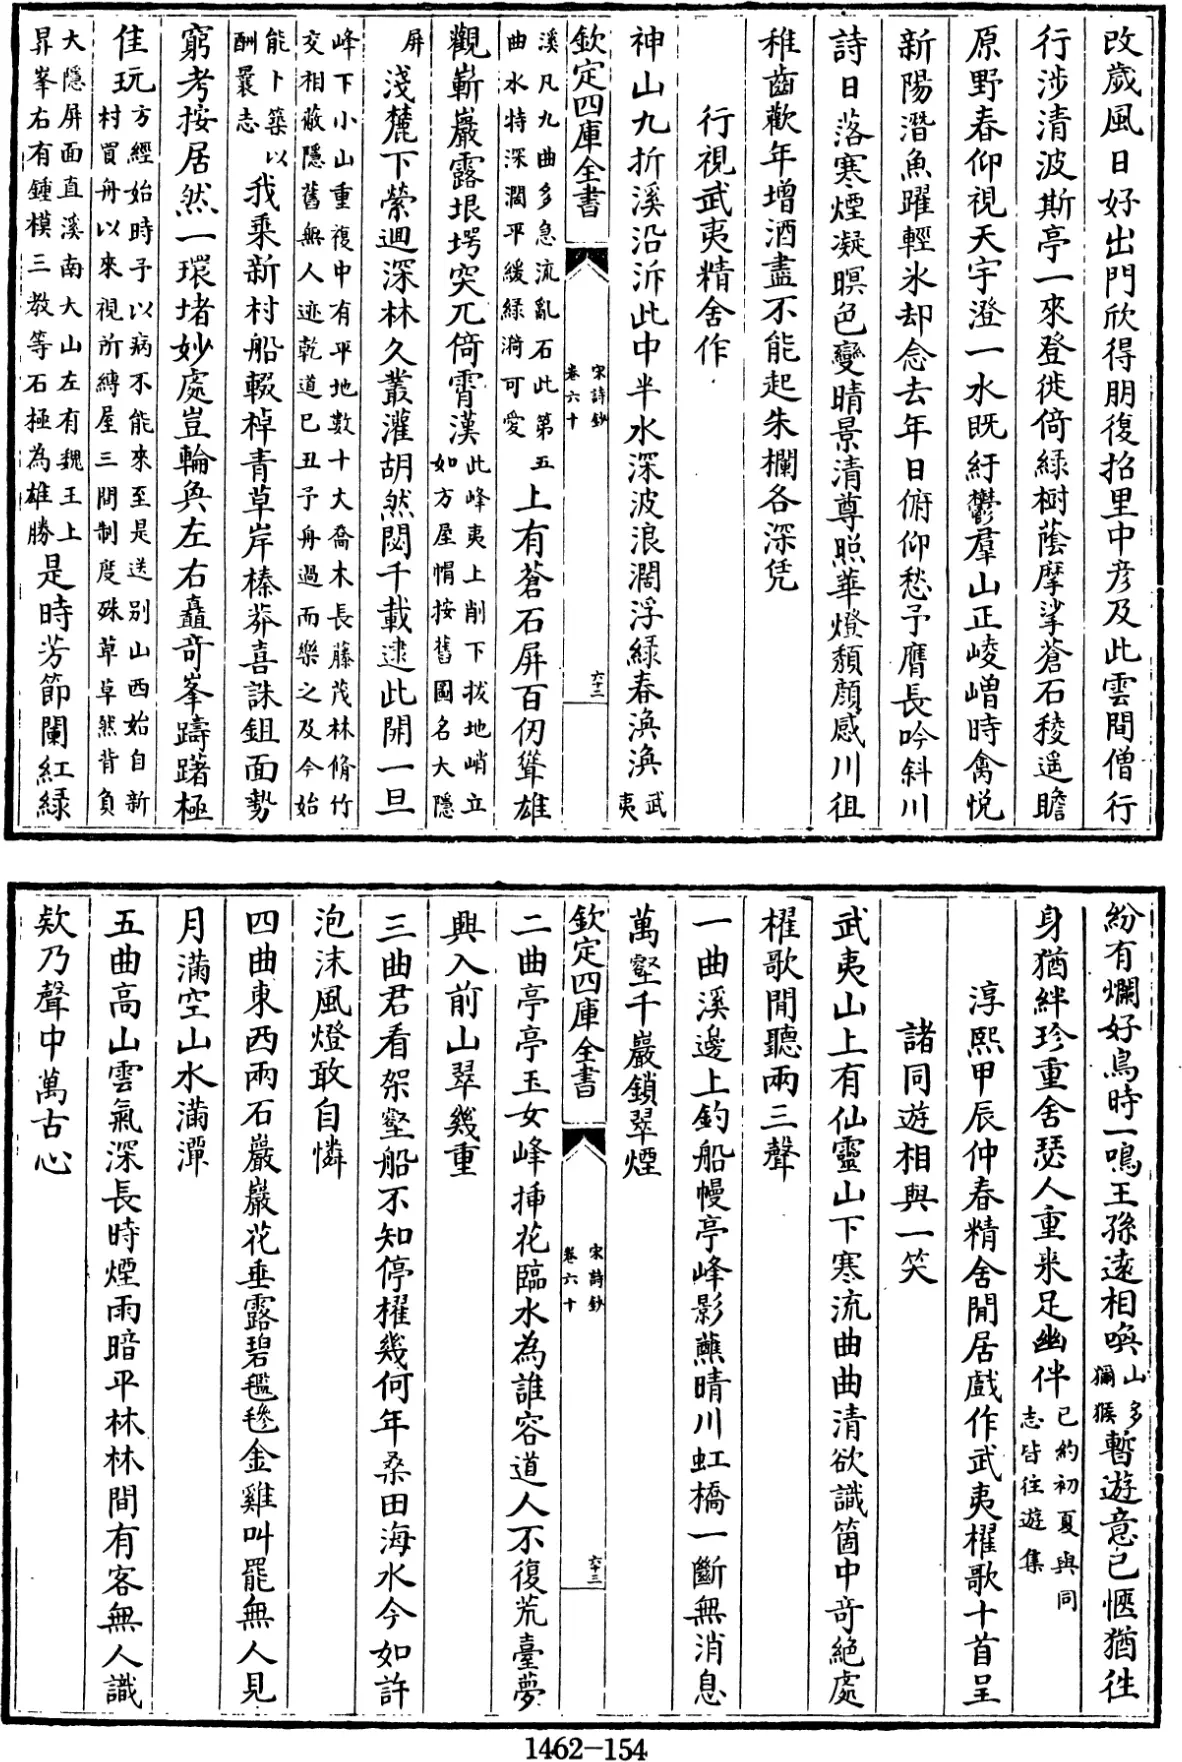 改歲風日好出門欣得朋復招里中彦及此雲間僧行
行涉清波斯亭一來登徙倚緑樹蔭摩挲蒼石稜遥瞻
原野春仰視天宇澄一水既紆鬱羣山正崚嶒時禽悦
新陽潛魚躍輕氷却念去年日俯仰愁予膺長吟斜川
詩日落寒煙凝暝色變晴景清尊照華燈頽顔感川徂
稚齒歡年增酒盡不能起朱欄各深凭
行視武夷精舍作
神山九折溪沿泝此中半水深波浪濶浮緑春渙渙武夷
欽定四庫全書
宋詩鈔
卷六十
六十三
溪凡九曲多急流亂石此第五
曲水特深濶平緩緑漪可愛
上有蒼石屏百仞聳雄
觀嶄巖露垠堮突兀倚霄漢
此峰夷上削下拔地峭立
如方屋帽按舊圖名大隱
屏
淺麓下縈迴深林久叢灌胡然閟千載逮此開一旦
峰下小山重複中有平地數十大喬木長藤茂林脩竹
交相蔽隱舊無人迹乾道已丑予舟過而樂之及今始
能卜築以
酬曩志
我乘新村船輟棹青草岸榛莽喜誅鉏面勢
窮考按居然一環堵妙處豈輪奐左右矗竒峯躊躇極
佳玩
方經始時予以病不能來至是送别山西始自新
村買舟以來視所縛屋三間制度殊草草然背負
大隱屏面直溪南大山左有魏王上
昇峯右有鍾模三教等石極為雄勝
是時芳節闌紅緑
紛有爛好鳥時一鳴王孫遠相喚
山多
獮猴
暫遊意已愜猶往
身猶絆珍重舍瑟人重來足幽伴
已約初夏與同
志皆往遊集
淳熙甲辰仲春精舍閒居戲作武夷櫂歌十首呈
諸同遊相與一笑
武夷山上有仙靈山下寒流曲曲清欲識箇中竒絶處
櫂歌閒聽兩三聲
一曲溪邊上釣船幔亭峰影蘸晴川虹橋一斷無消息
萬壑千巖鎖翠煙
欽定四庫全書
宋詩鈔
卷六十
六十三
二曲亭亭玉女峰揷花臨水為誰容道人不復荒臺夢
興入前山翠幾重
三曲君看架壑船不知停櫂幾何年桑田海水今如許
泡沫風燈敢自憐
四曲東西兩石巖巖花垂露碧㲯毿金雞叫罷無人見
月滿空山水滿潭
五曲高山雲氣深長時煙雨暗平林林間有客無人識
欸乃聲中萬古心
1462-154